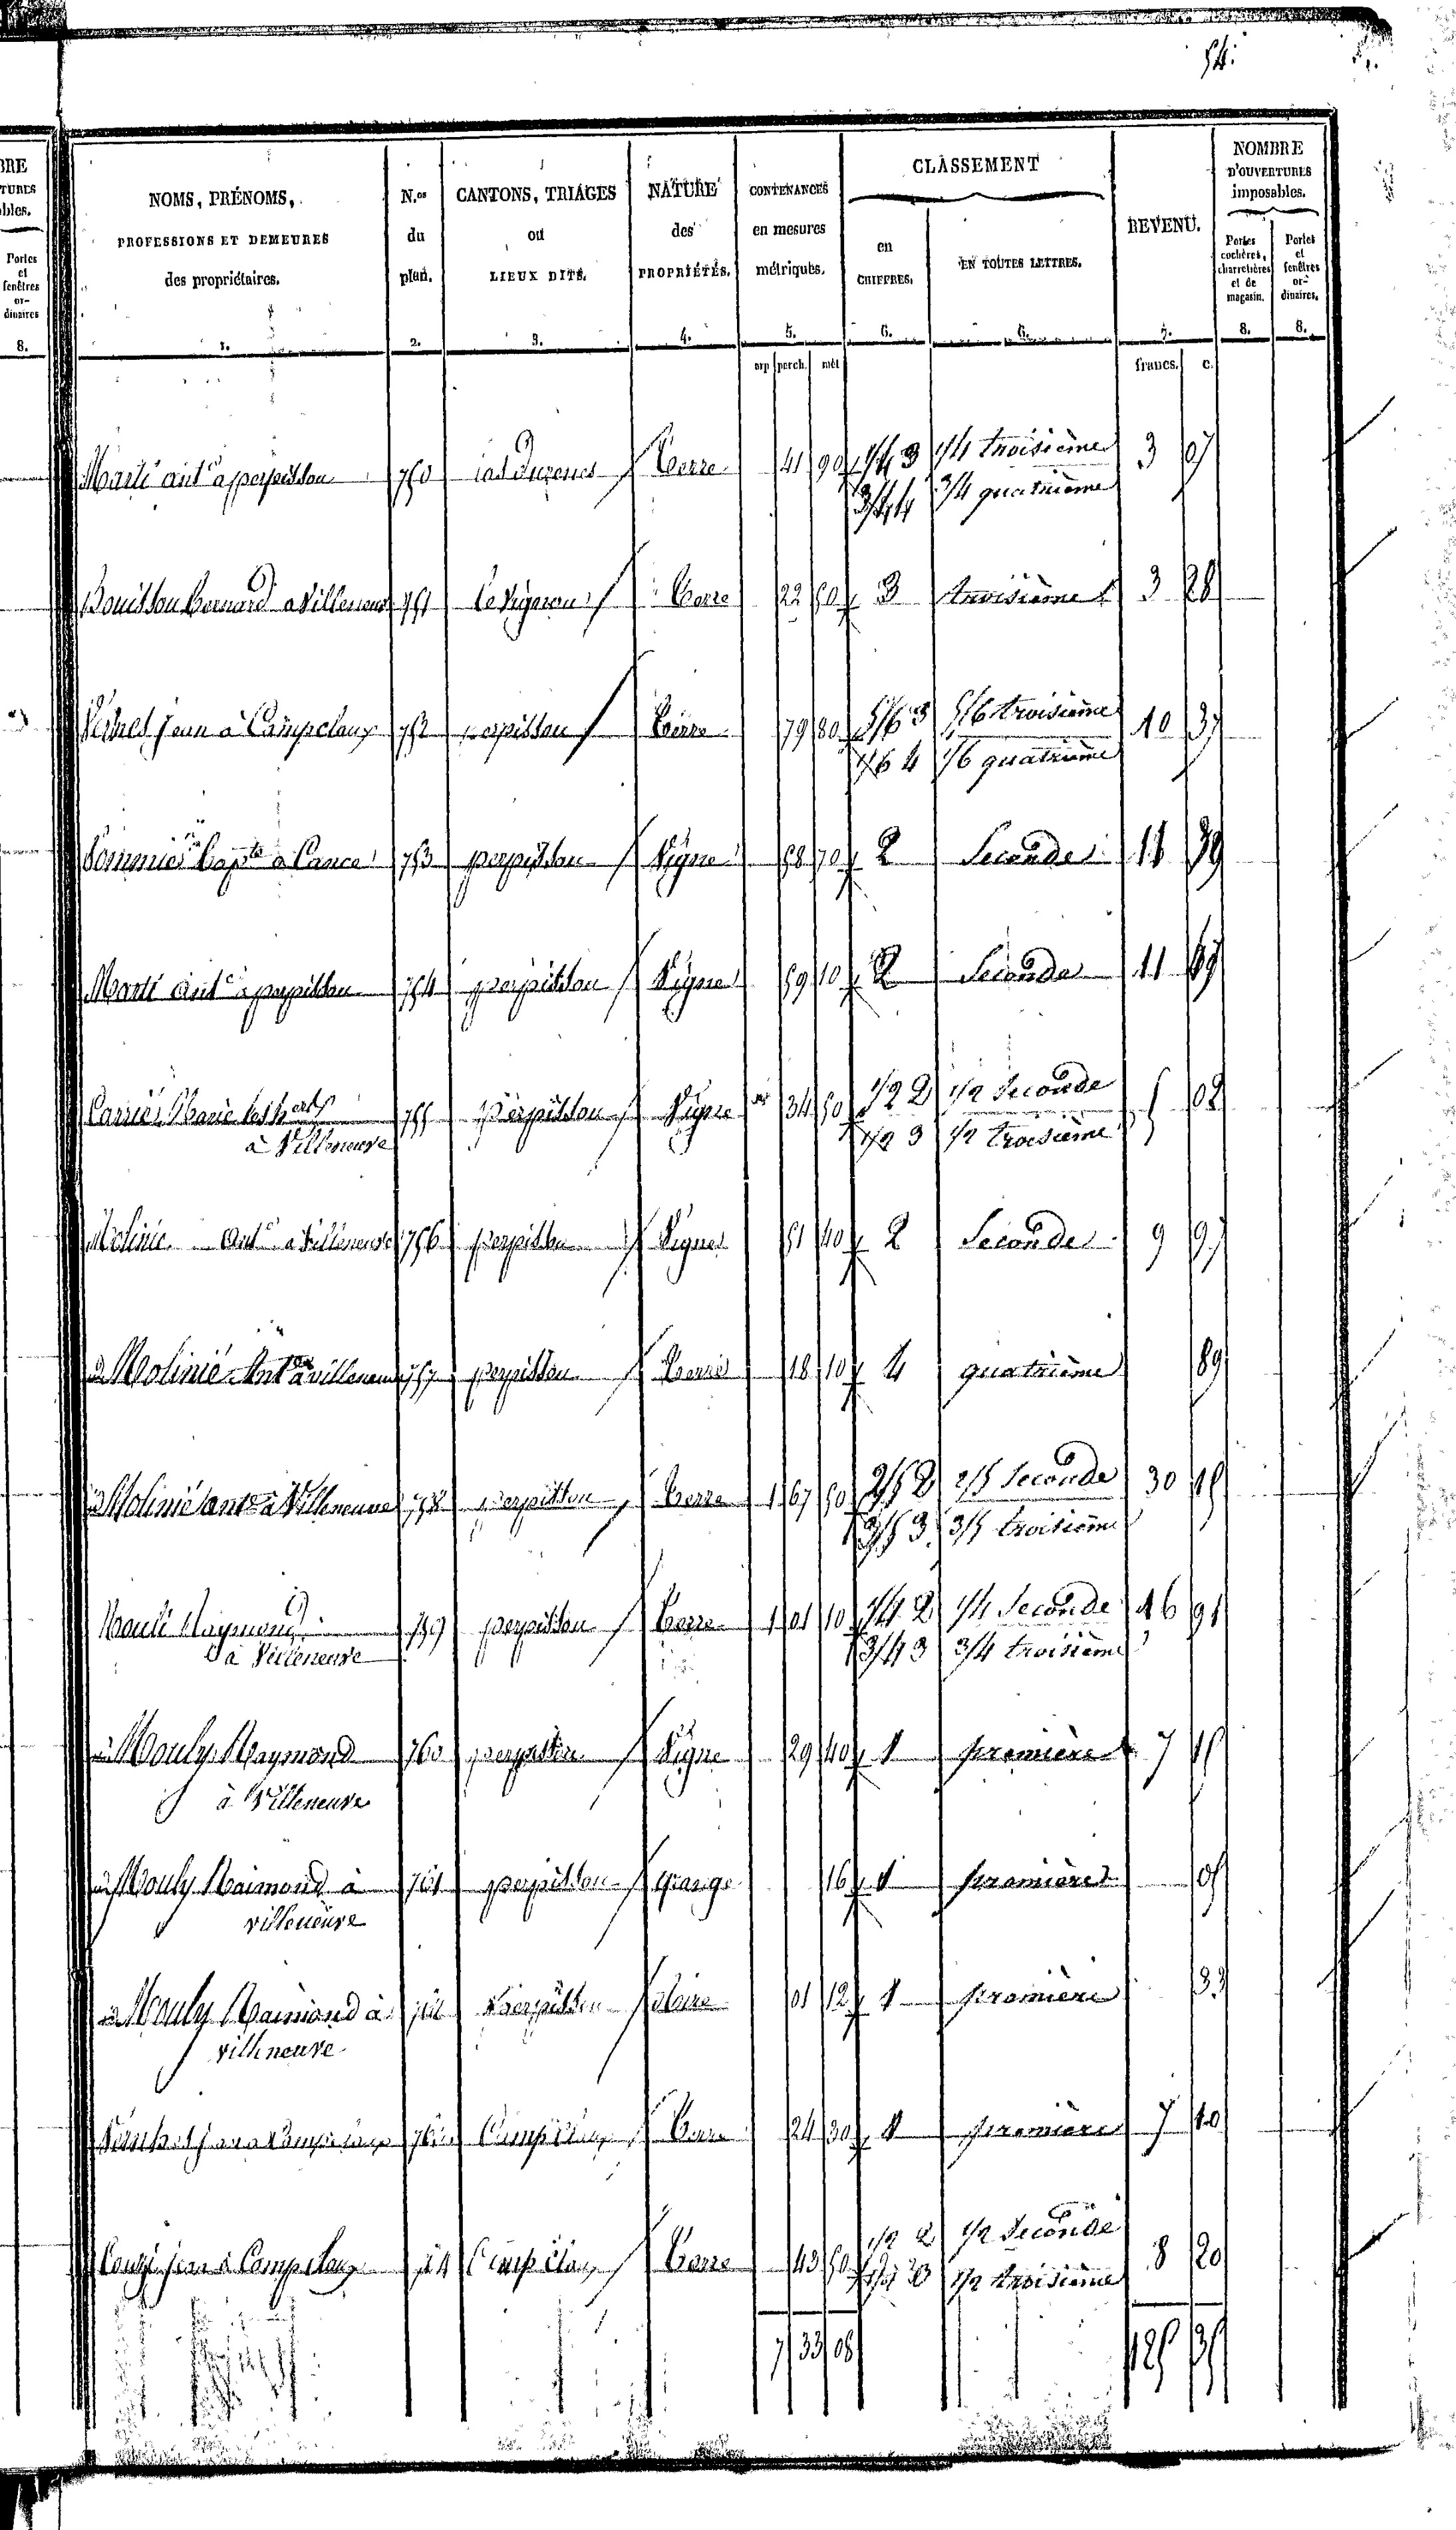 54.
BRE
TURES
bles.
Portes
et
fenêtres
or-
dinaires
8.
NOMS, PRÉNOMS,
PROFESSIONS ET DEMEURES
des propriétaires.
1.
N.os
du
plan.
2.
CANTONS, TRIAGES
ou
LIEUX DITS.
3.
NATURE
des
PROPRIÉTÉS.
4.
CONTENANCES
en mesures
métriques.
5.
CLASSEMENT
en
CHIFFRES.
6.
EN TOUTES LETTRES.
6.
REVENU.
7.
NOMBRE
D'OUVERTURES
imposables.
Portes
cochères,
charretières
et de
magasin.
8.
Portes
et
fenêtres
or-
dinaires.
8.
arp perch. mèt francs. c.
Marti antᵉ à perpillou 750 Terre 41 90 1/4 3 1/4 troisième 3 07
3/4 4 3/4 quatrième
Bouissou Bernard a Villeneuve 751 Le Vigerou Terre 22 50 3 troisième 3 28
jean à Campclaux 752 perpillou Terre 79 80 5/6 3 5/6 troisième 10 37
1/6 4 1/6 quatrième
Bapte à 753 perpillou Vigne 58 70 2 Seconde 11 39
Marti antᵉ à perpillou 754 perpillou Vigne 59 10 2 Seconde 11 47
Carrié Marie les hers 755 perpillou Vigne 34 50 1/2 2 1/2 seconde 5 02
à Villeneuve 1/2 3 1/2 troisième
Molinié antᵉ a Villeneuve 756 perpillou Vigne 51 40 2 Seconde 9 97
Molinié Antᵉ à villeneuve 757 perpillou Terre 18 10 4 quatrième 89
Molinié antᵉ à Villeneuve 758 perpillou Terre 1 67 50 2/5 2 2/5 seconde 30 15
3/5 3 3/5 troisième
Mouli Raymond 759 perpillou Terre 1 01 10 1/4 2 1/4 Seconde 16 91
à Villeneuve 3/4 3 3/4 troisième
Mouly Raymond 760 perpillou Vigne 29 40 1 première 7 15
à Villeneuve
Mouly Raimond à 761 perpillou grange 16 1 première 05
villeneuve
Mouly Raimond à 762 perpillou 01 12 1 première 33
villeneuve
Terre 24 30 1 première 7 10
jean à Campclaux Camp claux Terre 43 50 1/2 2 1/2 Seconde 8 20
1/2 3 1/2 troisième
7 33 08 125 35